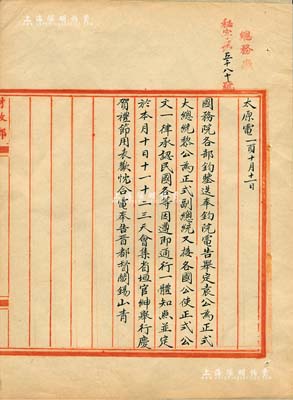 總務廳
秘字第五千八十號
太原電一百十月十二日
國務院各部鈞鑒迭奉鈞院電告舉定袁公為正式
大總統黎公為正式副總統又接各國公使正式公
文一律承認民國各等因遵即通行一體知照並定
於本月十日十一十二三天會集省垣官紳舉行慶
賀禮節用表歡忱合電奉告晉都督閻錫山青
財政部
上海陽明拍卖
上海陽明拍卖